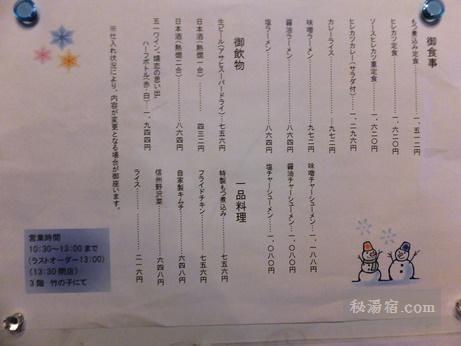 御食事
もつ煮込み定食………一、五一二
ヒレカツ定食………一、六二〇
ソースヒレカツ重定食………一、六二〇
ヒレカツカレー(サラダ付)……一、二九六
カレーライス………九七二
味噌ラーメン………九七二
醤油ラーメン………八六四
塩ラーメン………八六四
味噌チャーシューメン…一、一八八
醤油チャーシューメン…一、〇八〇
塩チャーシューメン…一、〇八〇
御飲物
生ビール(アサヒスーパードライ)…七五六
日本酒(熱燗一合)………四三二
日本酒(熱燗二合)………八六四
五一ワイン、嬬恋の思い出、
ハーフボトル(赤・白)…一、九四四
一品料理
特製もつ煮込み………七五六
フライドチキン………七五六
自家製キムチ………六四八
信州野沢菜………六四八
ライス………二一六
※仕入れ状況により、内容が変更となる場合が御座います。
営業時間
10:30~13:00まで
(ラストオーダー13:00)
(13:30閉店)
3階 竹の子にて
秘湯宿.com